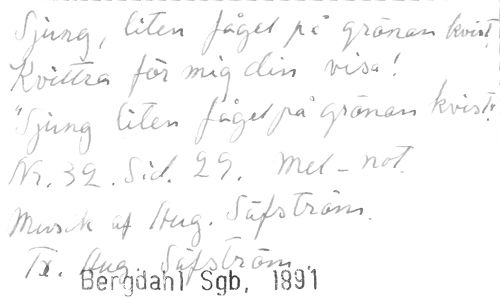 Sjung, liten fågel på grönan kvist,
Kvittra för mig din visa!
"Sjung liten fågel på grönan kvist".
Nr. 32. Sid. 29. Mel-not.
Musik af Aug. Säfström.
Tx. Aug. Säfström.
Bergdahl Sgb, 1891